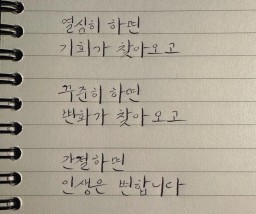 열심히 하면
기회가 찾아오고
꾸준히 하면
변화가 찾아오고
간절하면
인생은 변합니다